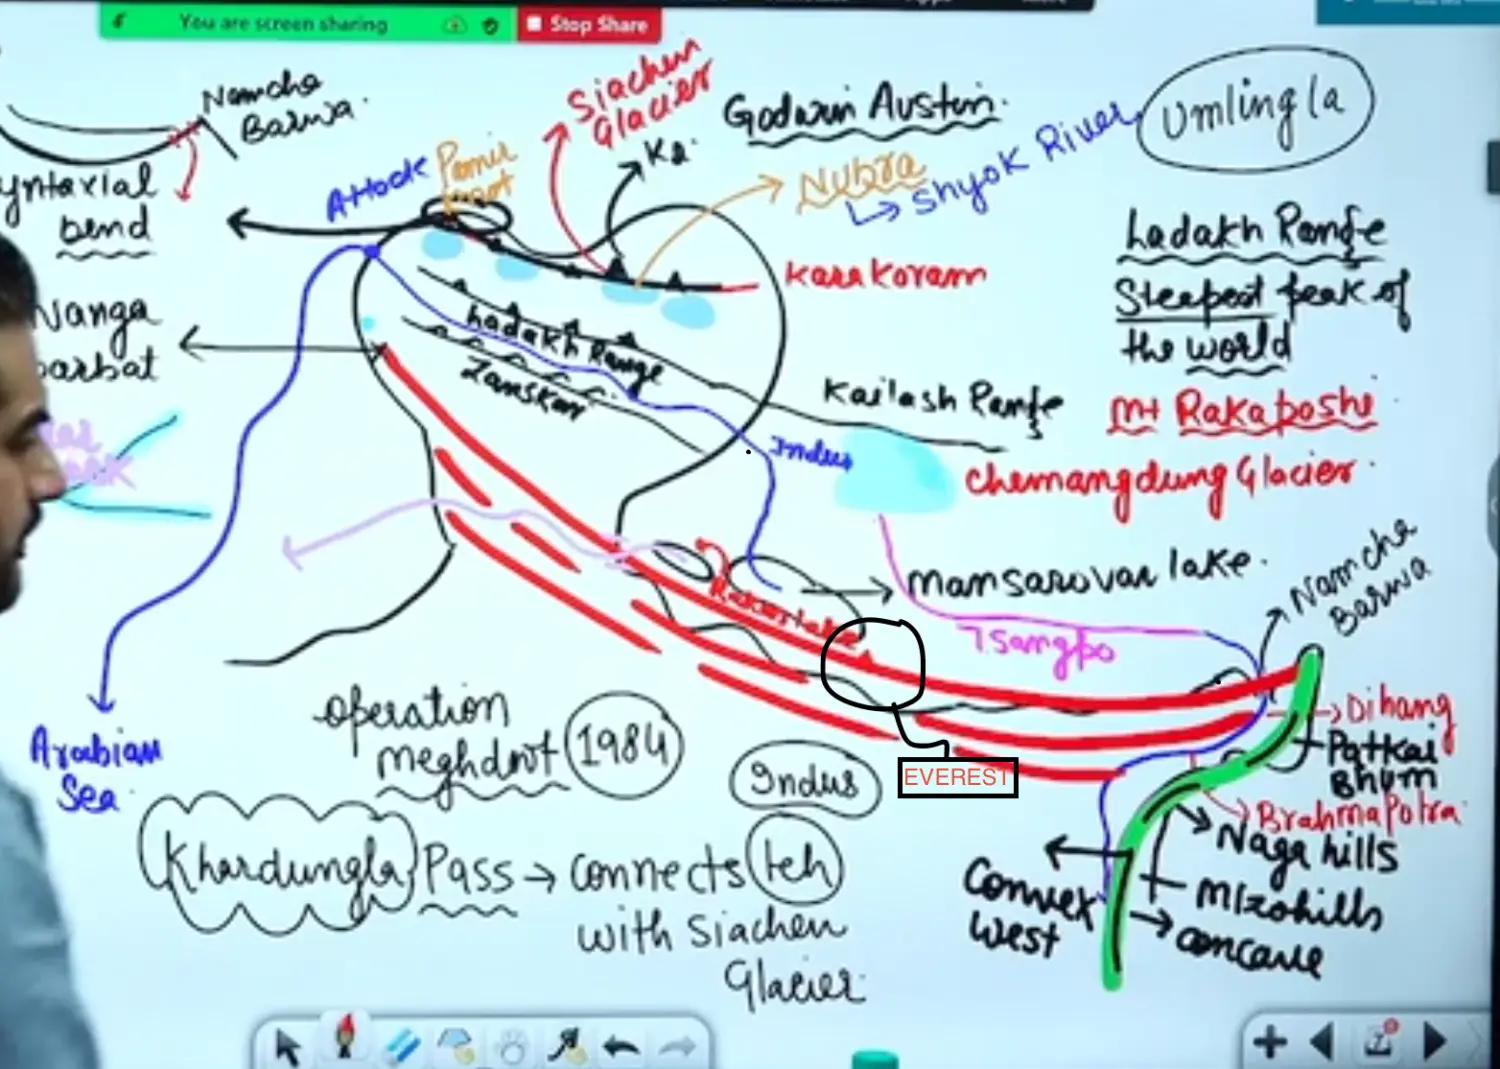 You are screen sharing
Stop Share
Namcha
Barwa.
yntaxial
bend
Nanga
parbat
Attock
Pamir
knot
Siachen
Glacier
K2.
Godwin Austin.
Nubra
Shyok River
Umlingla
Ladakh Range
Steepest peak of
the world
Mt Rakaposhi
Karakoram
Ladakh Range
Zanskar
Kailash Range
Indus
Chemangdung Glacier.
Mansarovar lake.
Rakas lake
Tsangpo
Namcha
Barwa
EVEREST
Dihang
Patkai
Bhum
BrahmaPotra
Naga hills
Mizohills
concave
Convex
West
Arabian
Sea.
operation
meghdoot 1984
Indus
Khardungla Pass → connects Leh
with Siachen
Glacier.